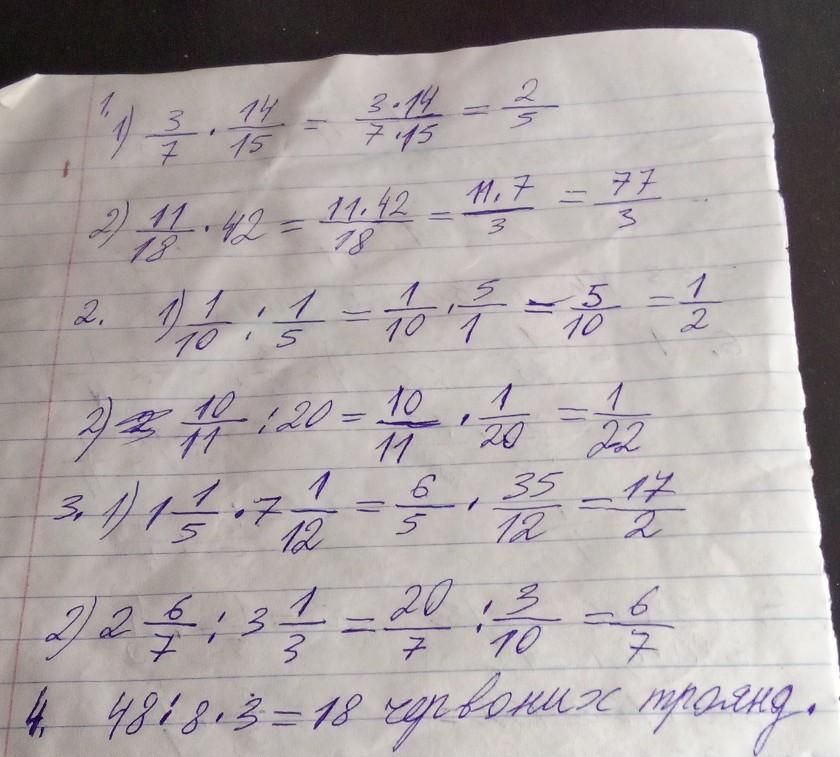 1. 1) 3/7 · 14/15 = 3·14/7·15 = 2/5
2) 11/18 · 42 = 11·42/18 = 11·7/3 = 77/3
2. 1) 1/10 : 1/5 = 1/10 · 5/1 = 5/10 = 1/2
2) 10/11 : 20 = 10/11 · 1/20 = 1/22
3. 1) 1 1/5 · 7 1/12 = 6/5 · 35/12 = 17/2
2) 2 6/7 : 3 1/3 = 20/7 : 3/10 = 6/7
4. 48 : 8 · 3 = 18 червоних троянд.